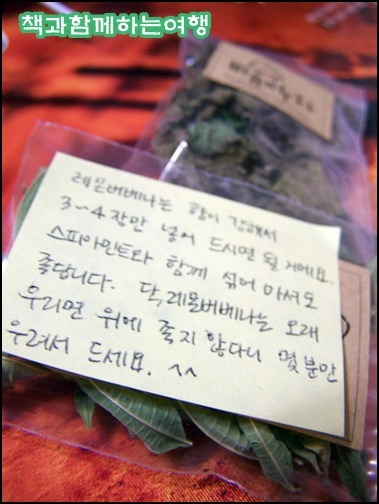 책과함께하는여행
레몬버베나는 향이 강해서
3~4장만 넣어 드시면 될 거에요.
스피아민트와 함께 섞어 마셔도
좋답니다. 단, 레몬버베나는 오래
우리면 위에 좋지 않다니 몇 분만
우려서 드세요. ^^